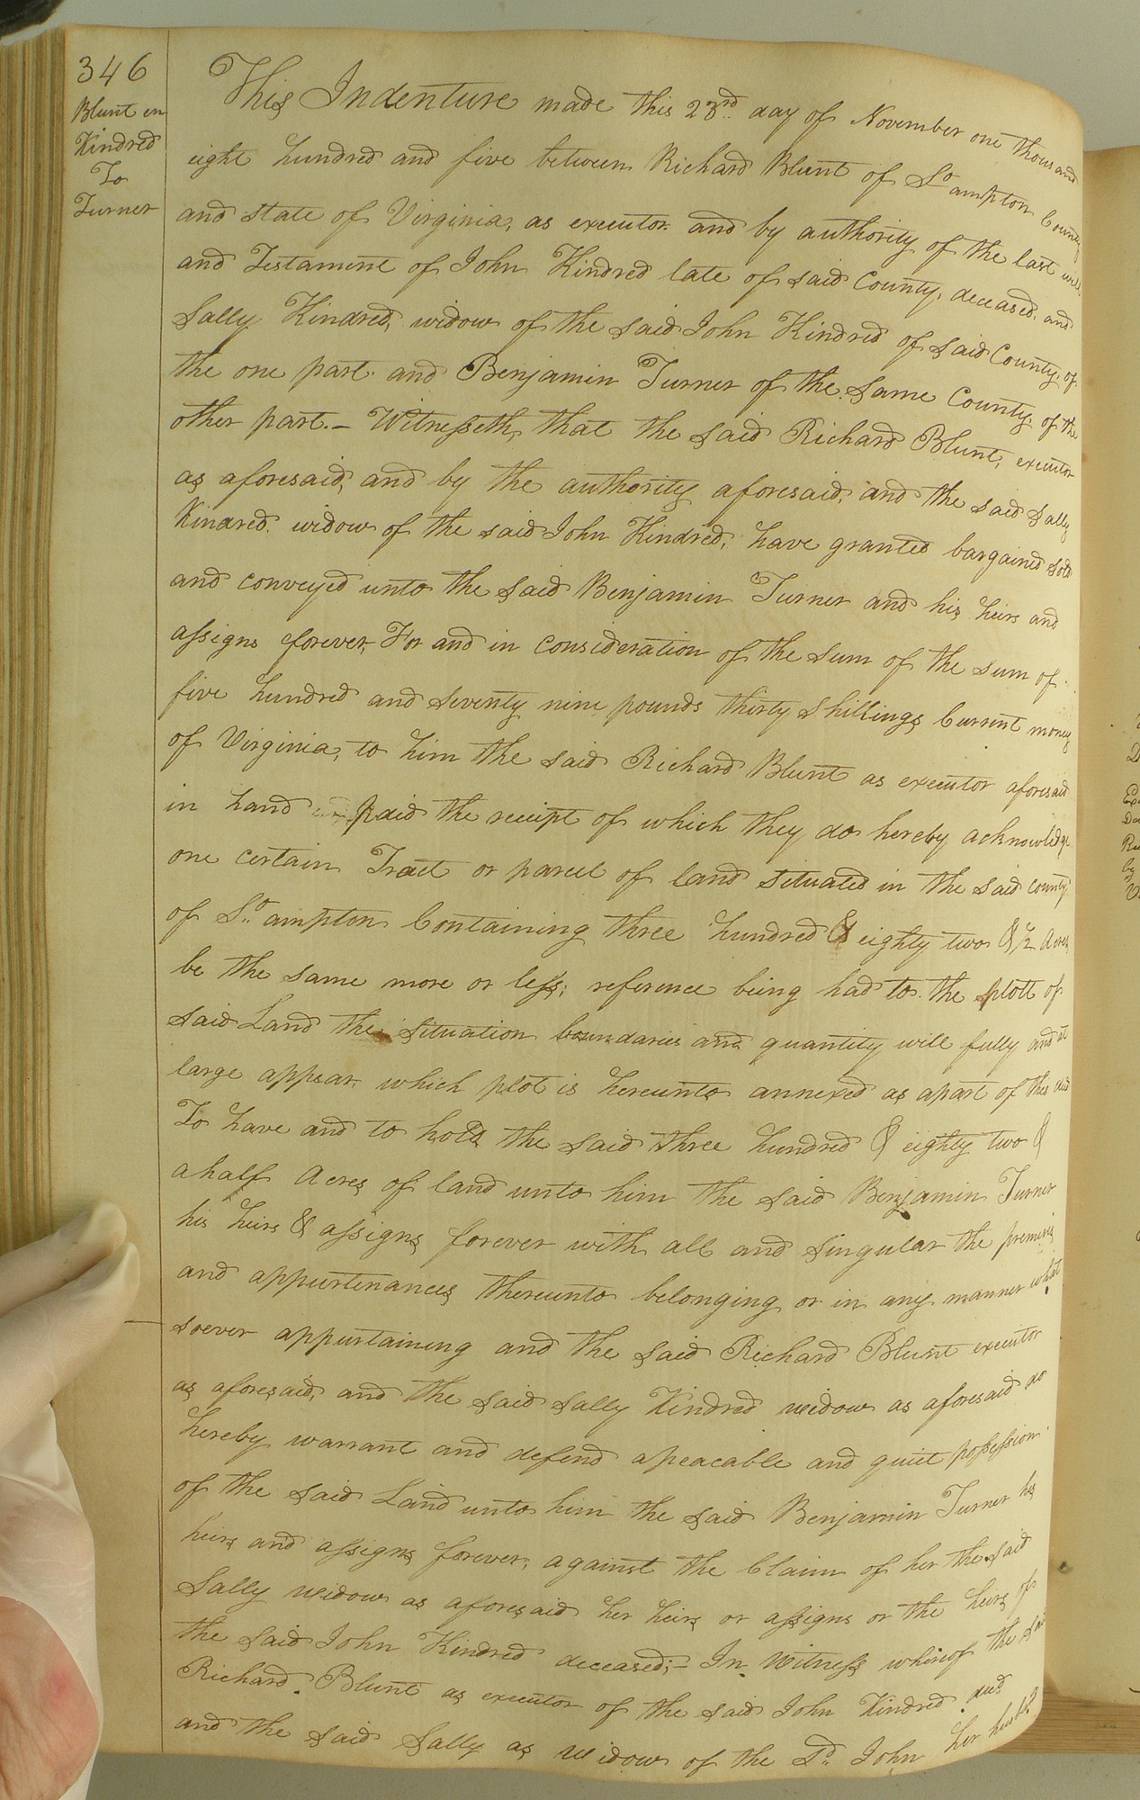 346
Blunt ex
Kindred
To
Turner
This Indenture made this 23rd day of November one thousand
eight hundred and five between Richard Blunt of So ampton County
and state of Virginia, as executor and by authority of the last will
and Testament of John Kindred late of said County, deceased, and
Sally Kindred, widow of the said John Kindred of said County, of
the one part. and Benjamin Turner of the same County, of the
other part. – Witnesseth, that the said Richard Blunt, executor
as aforesaid, and by the authority aforesaid, and the said Sally
Kindred widow of the said John Kindred, have granted bargained sold
and conveyed unto the said Benjamin Turner and his heirs and
assigns forever, For and in consideration of the sum of the sum of
five hundred and seventy nine pounds thirty Shillings Current money
of Virginia, to him the said Richard Blunt as executor aforesaid
in hand paid the receipt of which they do hereby acknowledge
one certain Tract or parcel of land situated in the said county
of So ampton Containing three hundred & eighty two & 1/2 Acres
be the same more or less; reference being had to the plott of
said Land the situation boundaries and quantity will fully and at
large appear which plot is hereunto annexed as apart of this deed
To have and to hold the said three hundred & eighty two &
a half Acres of land unto him the said Benjamin Turner
his heirs & assigns forever with all and singular the premises
and appurtenances thereunto belonging or in any manner what
soever appurtaining and the said Richard Blunt executor
as aforesaid, and the said Sally Kindred widow as aforesaid do
hereby warrant and defend apeacable and quiet possession
of the said Land unto him the said Benjamin Turner his
heirs and assigns forever, against the Claim of her the said
Sally widow as aforesaid her heirs or assigns or the heirs of
the said John Kindred deceased; – In Witness whereof the said
Richard Blunt as executor of the said John Kindred decd
and the said Sally as widow of the Sd. John her husbd